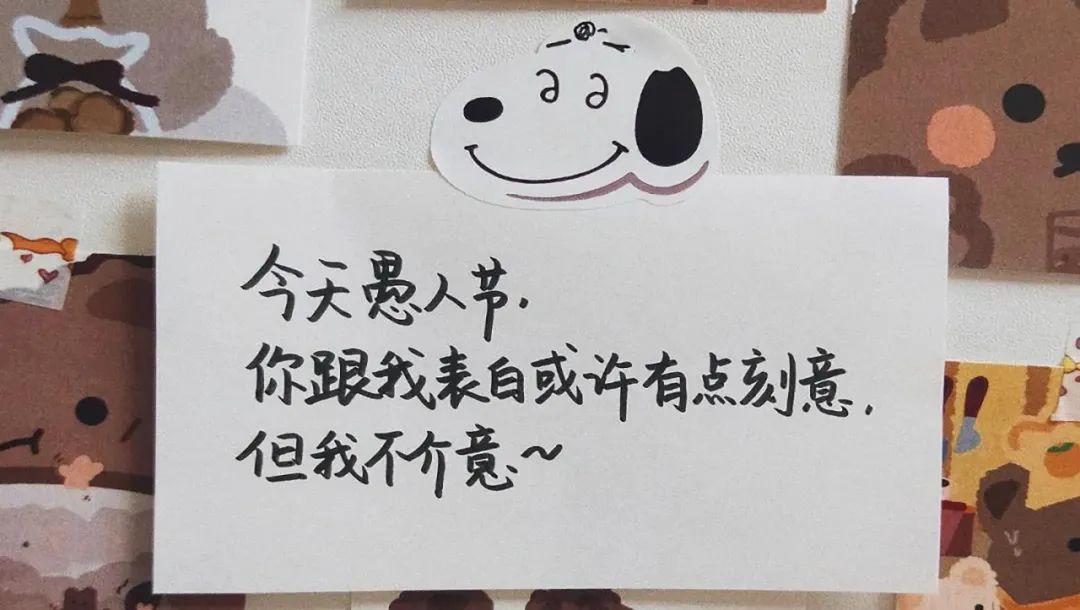 今天愚人节.
你跟我表白或许有点刻意,
但我不介意~